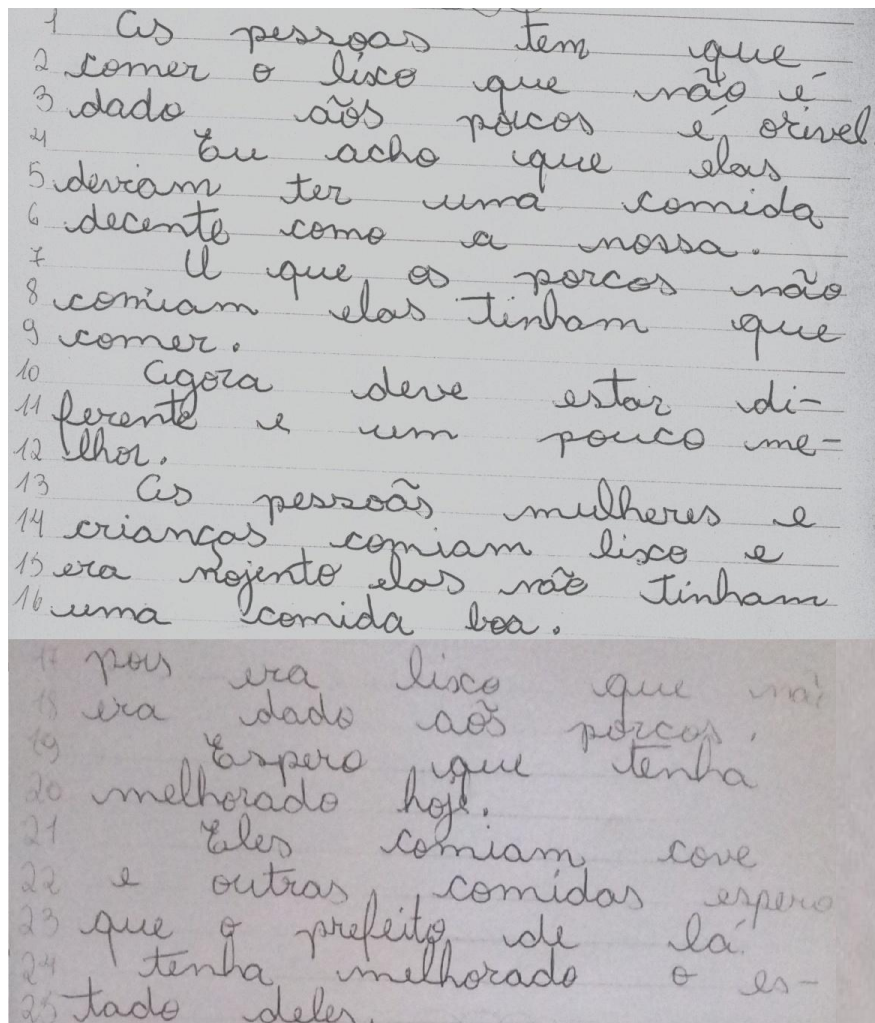 1 As pessoas tem que
2 comer o lixo que não é
3 dado aõs porcos é orivel
4 Eu acho que elas
5 deviam ter uma comida
6 decente como a nossa.
7 U que os porcos não
8 comiam elas tinham que
9 comer.
10 Agora deve estar di-
11 ferente e um pouco me-
12 lhor.
13 As pessoãs mulheres e
14 crianças comiam lixo e
15 era nojento elas não tinham
16 uma comida boa.
17 pois era lixo que não
18 era dado aõs porcos.
19 Espero que tenha
20 melhorado hoje.
21 Eles comiam cove
22 e outras comidas espero
23 que o prefeito de lá
24 tenha melhorado o es-
25 tado deles.